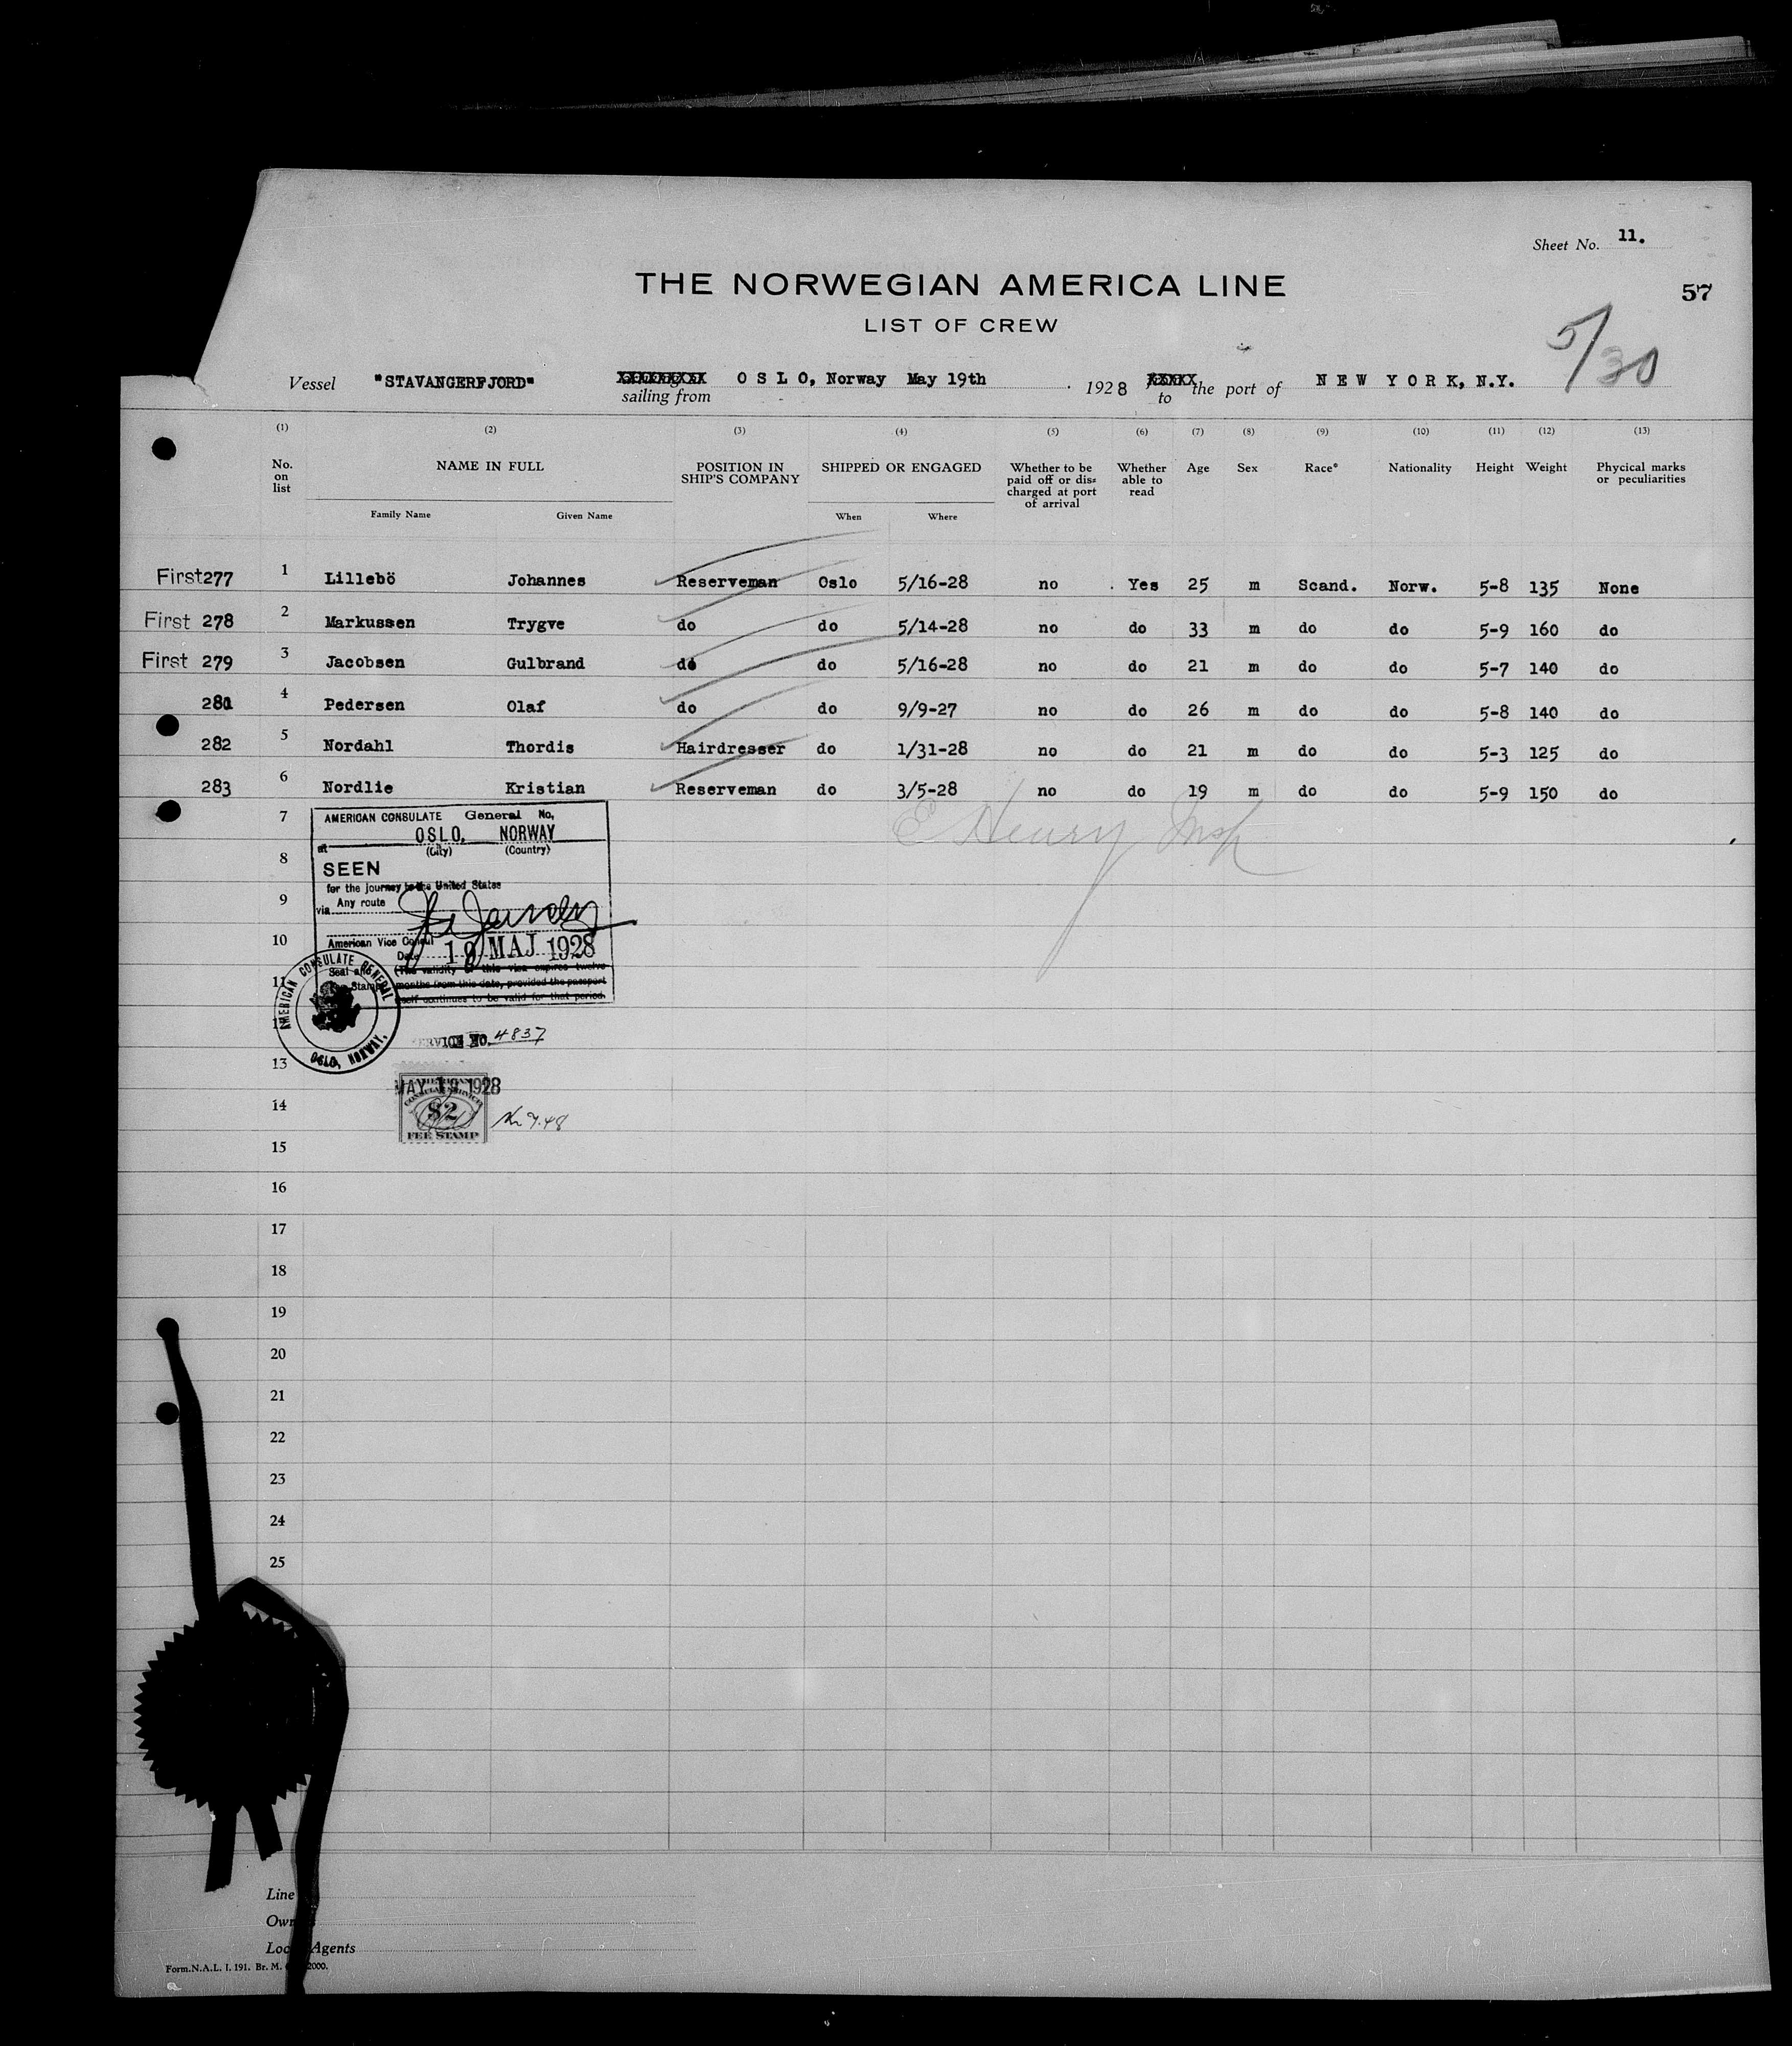 Sheet No. 11.
THE NORWEGIAN AMERICA LINE
57
LIST OF CREW
5/30
Vessel "STAVANGERFJORD" sailing from O S L O, Norway May 19th . 1928 to the port of N E W Y O R K, N.Y.
(1) (2) (3) (4) (5) (6) (7) (8) (9) (10) (11) (12) (13)
No. on list NAME IN FULL POSITION IN SHIP'S COMPANY SHIPPED OR ENGAGED Whether to be paid off or dis= charged at port of arrival Whether able to read Age Sex Race* Nationality Height Weight Phycical marks or peculiarities
Family Name Given Name When Where
First 277 1 Lillebö Johannes Reserveman Oslo 5/16-28 no . Yes 25 m Scand. Norw. 5-8 135 None
First 278 2 Markussen Trygve do do 5/14-28 no do 33 m do do 5-9 160 do
First 279 3 Jacobsen Gulbrand do do 5/16-28 no do 21 m do do 5-7 140 do
4 Pedersen Olaf do do 9/9-27 no do 26 m do do 5-8 140 do
282 5 Nordahl Thordis Hairdresser do 1/31-28 no do 21 m do do 5-3 125 do
283 6 Nordlie Kristian Reserveman do 3/5-28 no do 19 m do do 5-9 150 do
7
AMERICAN CONSULATE General No,
at OSLO, NORWAY
(City) (Country)
E Henry Insp
8
SEEN
for the journey to the United States
9
via Any route
10
American Vice Consul
Date 19 MAJ 1928
11
Seal and (The validity of this visa expires twelve
Stamp months from this date, provided the passport
itself continues to be valid for that period.
AMERICAN CONSULATE GENERAL
OSLO, NORWAY.
SERVICE NO. 4837
13
MAY 19 1928
AMERICAN
CONSULAR SERVICE
$2
FEE STAMP
14
7.48
15
16
17
18
19
20
21
22
23
24
25
Line
Owners
Local Agents
Form.N.A.L. I. 191. Br. M. 2000.